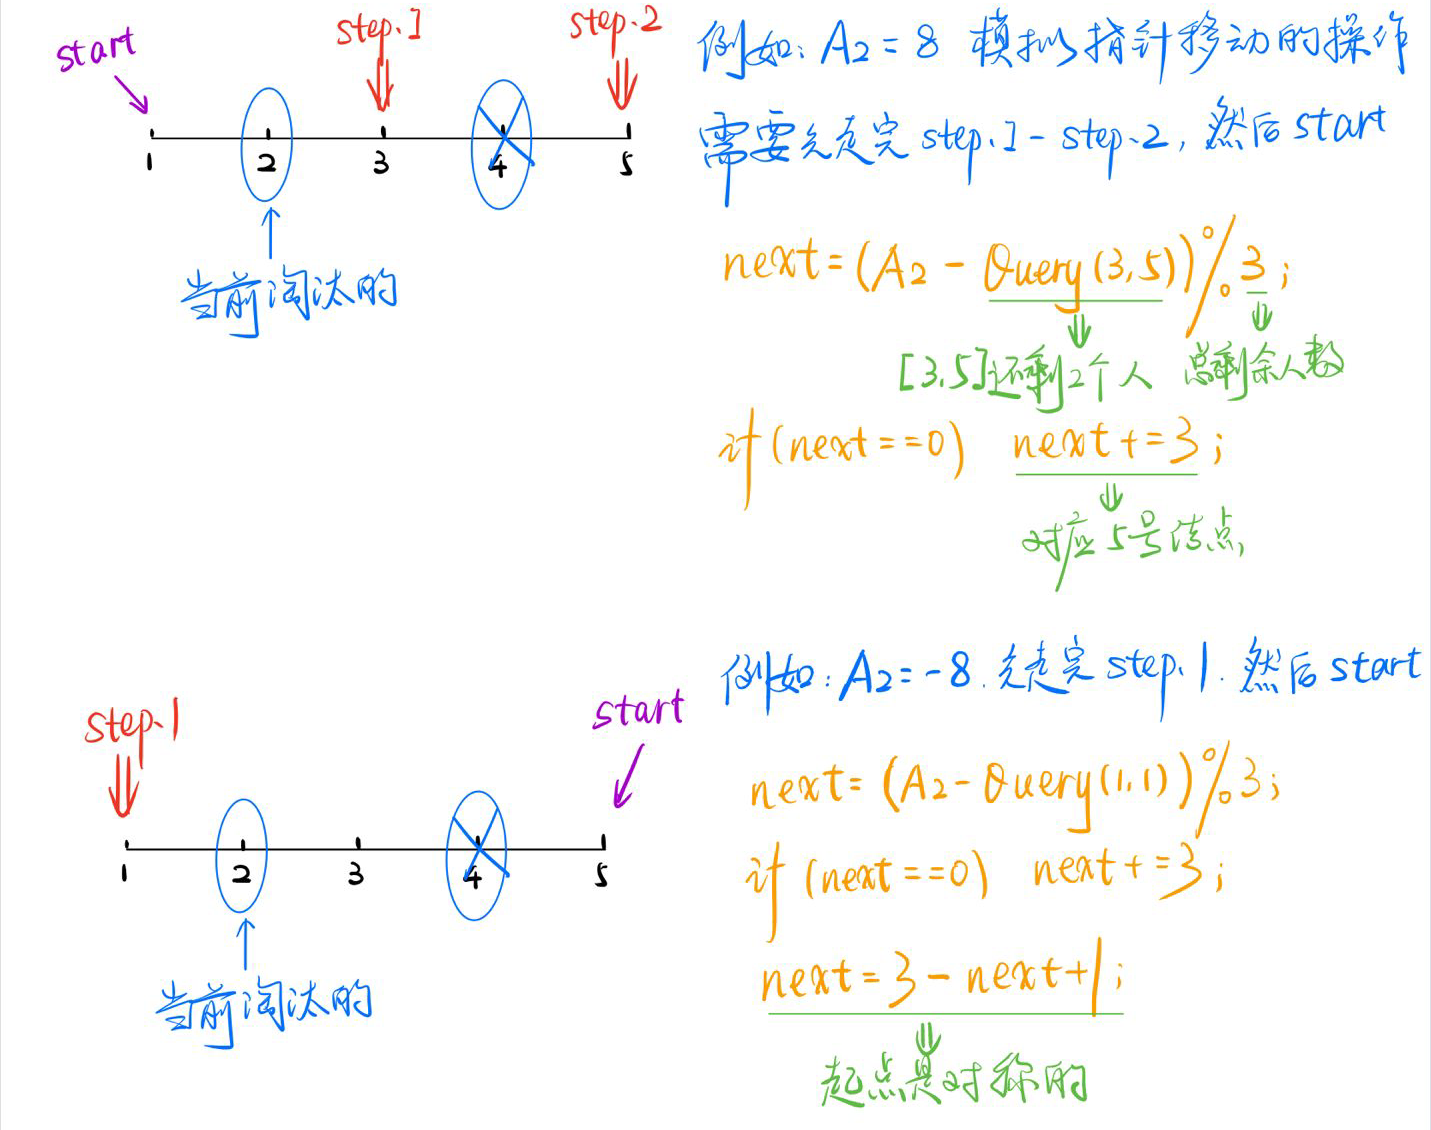 start
step.1
step.2
1 2 3 4 5
当前淘汰的
例如: A2 = 8 模拟指针移动的操作
需要先走完 step.1 - step.2, 然后 start
next = (A2 - Query(3,5)) % 3;
[3.5]还剩2个人 总剩余人数
if (next == 0) next += 3;
对应5号结点,
step.1
start
1 2 3 4 5
当前淘汰的
例如: A2 = -8. 先走完 step.1. 然后 start
next = (A2 - Query(1,1)) % 3;
if (next == 0) next += 3;
next = 3 - next + 1;
起点是对称的